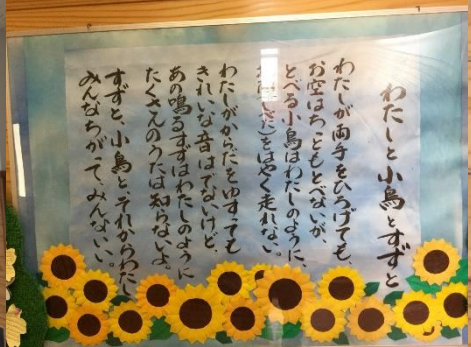 わたしと小鳥とすずと
わたしが両手をひろげても、
お空はちっともとべないが、
とべる小鳥はわたしのように、
をはやく走れない。
わたしがからだをゆすっても
きれいな音はでないけど、
あの鳴るすずはわたしのように
たくさんのうたは知らないよ。
すずと、小鳥と、それからわたし
みんなちがって、みんないい。